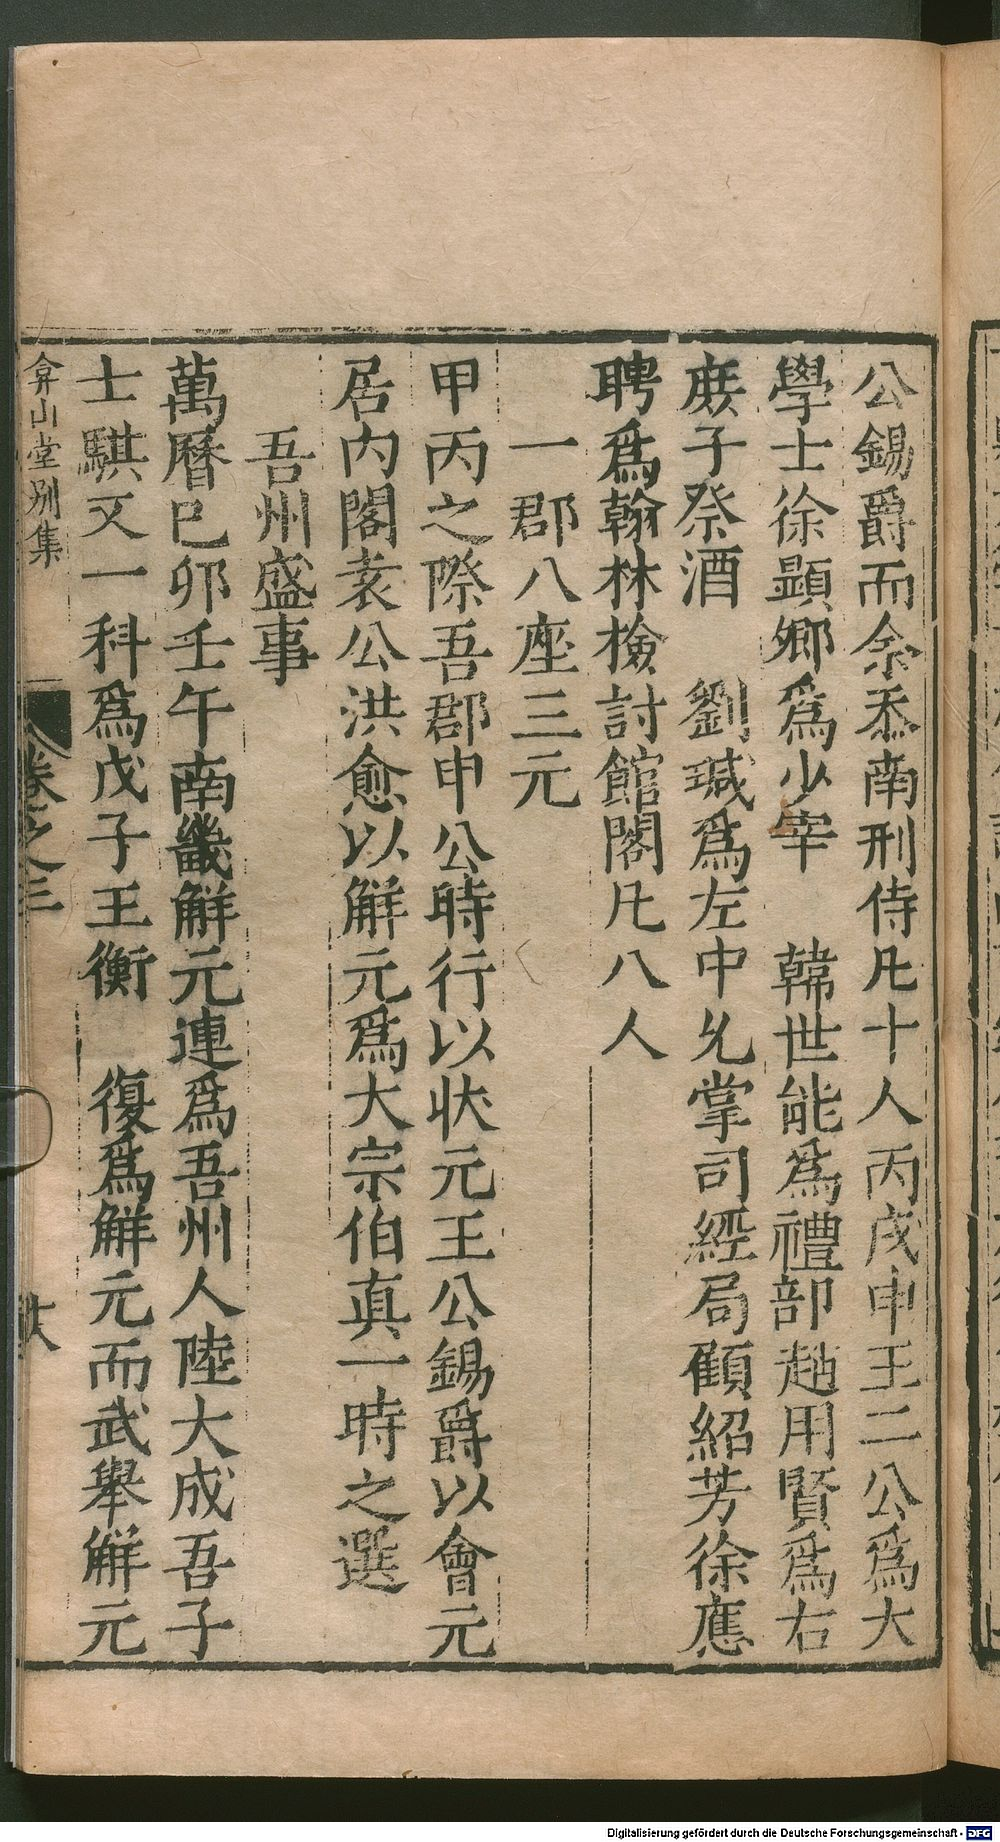 公錫爵而余忝南刑侍凡十人丙戌申王二公爲大
學士徐顯卿爲少宰 韓世能爲禮部趙用賢爲右
庶子祭酒 劉瑊爲左中允掌司經局顧紹芳徐應
聘爲翰林檢討館閣凡八人
一郡八座三元
甲丙之際吾郡申公時行以狀元王公錫爵以會元
居內閣袁公洪愈以解元爲大宗伯真一時之選
吾州盛事
萬曆己卯壬午南畿解元連爲吾州人陸大成吾子
士騏又一科爲戊子王衡 復爲解元而武舉解元
弇山堂別集 卷之三 廿六
Digitalisierung gefördert durch die Deutsche Forschungsgemeinschaft - DFG